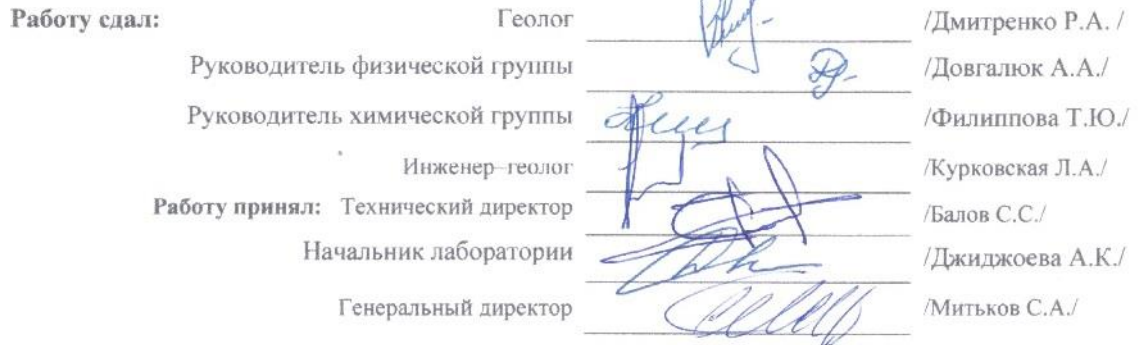 Работу сдал: Геолог /Дмитренко Р.А. /
Руководитель физической группы /Довгалюк А.А./
Руководитель химической группы /Филиппова Т.Ю./
Инженер–геолог /Курковская Л.А./
Работу принял: Технический директор /Балов С.С./
Начальник лаборатории /Джиджоева А.К./
Генеральный директор /Митьков С.А./